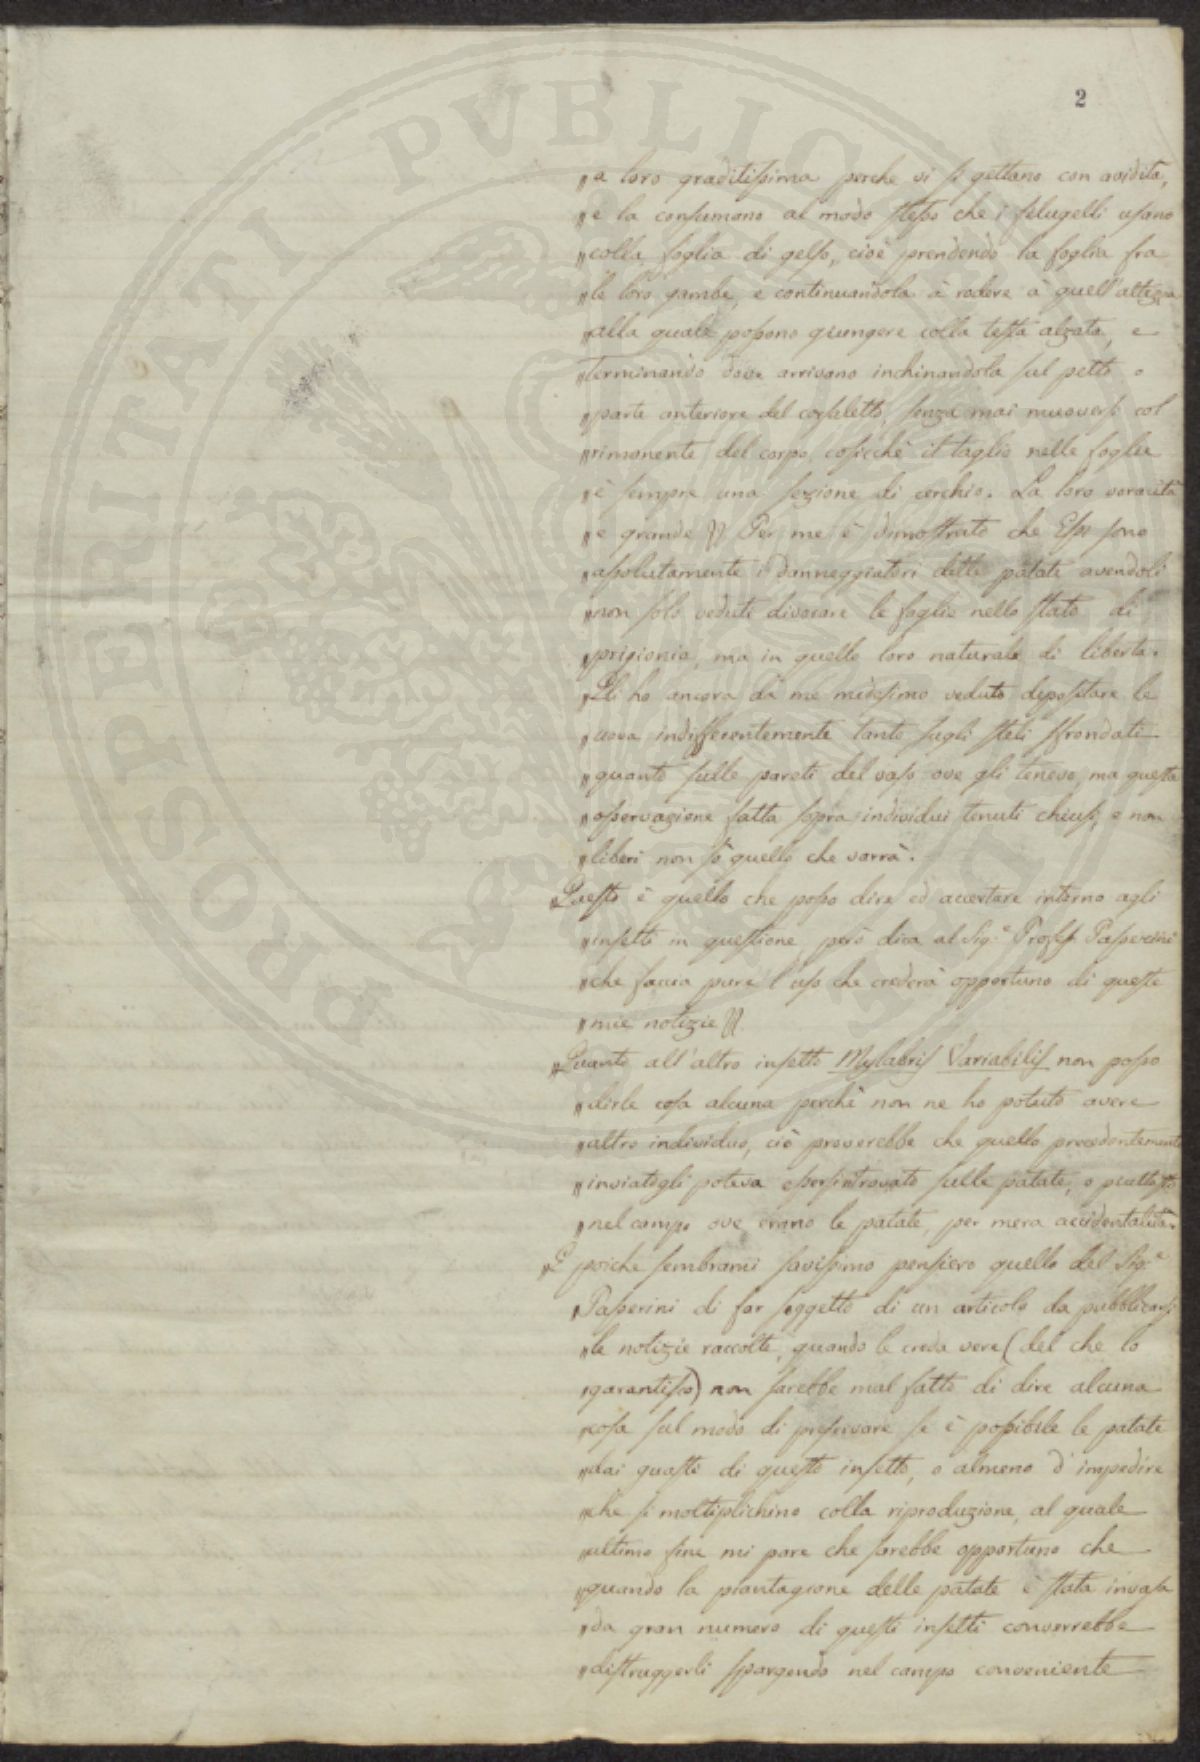 2
„a loro graditissima perche vi si gettano con avidità,
„e la consumano al modo stesso che i filugelli usano
„colla foglia di gelso, cioè prendendo la foglia fra
„le loro gambe, e continuandola à rodere à quell'altezza
„alla quale possono giungere colla testa alzata, e
„terminando dove arrivano inchinandola sul petto o
„parte anteriore del corsaletto, senza mai muoversi col
„rimanente del corpo, cosicchè il taglio nelle foglie
„è sempre una sezione di cerchio. La loro voracità
„e grande „ Per me è dimostrato che Essi sono
„assolutamente i danneggiatori delle patate avendoli
„non solo veduti divorare le foglie nello stato di
„prigionia, ma in quello loro naturale di libertà.
„Gli ho ancora da me medesimo veduto depositare le
„uova indifferentemente tanto sugli steli sfrondati
„quanto sulle pareti del vaso ove gli tenevo, ma questa
„osservazione fatta sopra individui tenuti chiusi, e non
„liberi non sò quello che varrà.
„Questo è quello che posso dire ed accertare intorno agli
„insetti in questione, però dica al Sig.e Profess Passerini
„che faccia pure l'uso che crederà opportuno di queste
„mie notizie „
„Quanto all'altro insetto Mylabris Variabilis non posso
„dirle cosa alcuna perchè non ne ho potuto avere
„altro individuo, ciò proverebbe che quello precedentemente
„inviatogli poteva essersi trovato sulle patate, o piuttosto
„nel campo ove erano le patate, per mera accidentalità.
„E poiche sembrami savissimo pensiero quello del Sig.e
„Passerini di far soggetto di un articolo da pubblicarsi
„le notizie raccolte, quando le creda vere (del che lo
„garantisco) non sarebbe mal fatto di dire alcuna
„cosa sul modo di preservare se è possibile le patate
„dai guasti di questo insetto, o almeno d'impedire
„che si moltiplichino colla riproduzione, al quale
„ultimo fine mi pare che sarebbe opportuno che
„quando la piantagione delle patate è stata invasa
„da gran numero di questi insetti converrebbe
„distruggerli spargendo nel campo conveniente
PROSPERITATI PVBLICAE